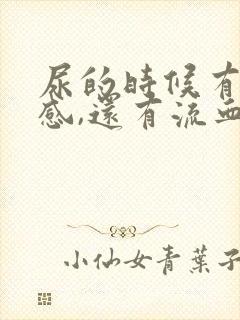 尿的時候有
感,還有流血
小仙女青葉子